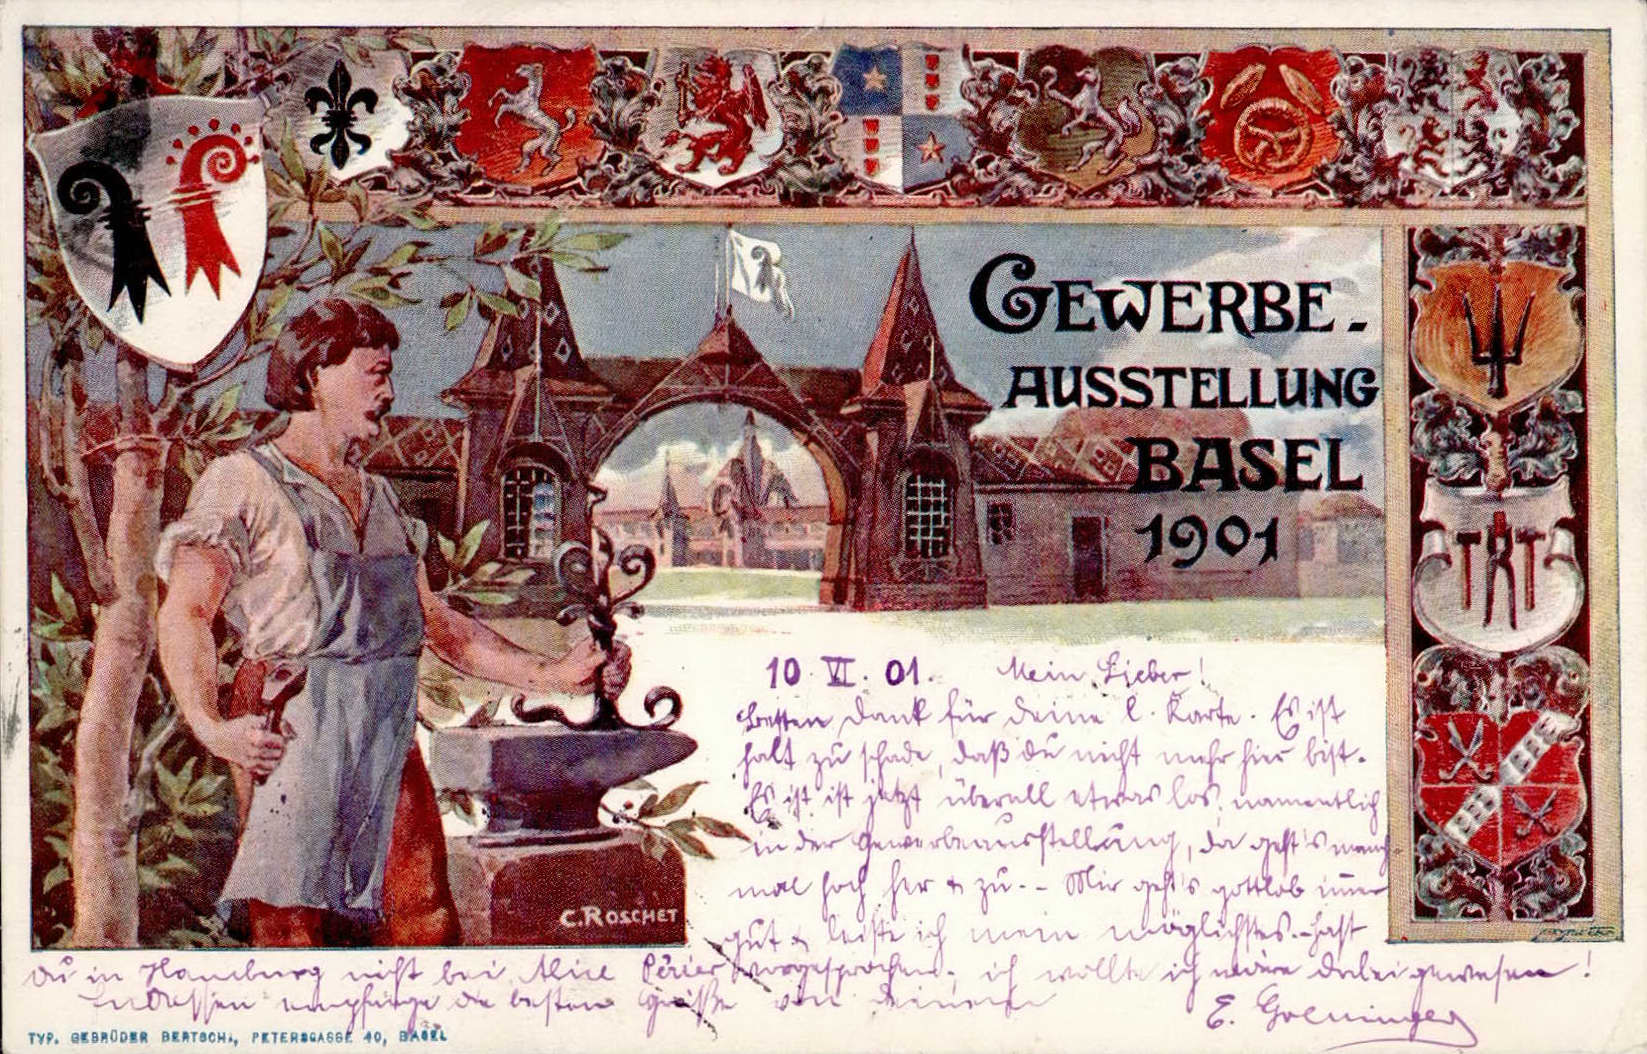 GEWERBE-
AUSSTELLUNG
BASEL
1901
10. VI. 01. Mein Lieber!
Besten Dank für deine l. Karte. Es ist
halt zu schade, daß du nicht mehr hier bist.
Es ist ist jetzt überall etwas los, namentlich
in der Gewerbeausstellung, da geht's manch-
mal hoch her & zu. - Mir geht's gottlob immer
gut & leiste ich mein möglichstes. - Hast
du in Hamburg nicht bei Alice vorgesprochen, ich wollte ich wäre dabei gewesen!
Indessen empfange die besten Grüße von deinem
E.
C. ROSCHET
TYP. GEBRÜDER BERTSCHI, PETERSGASSE 40, BASEL